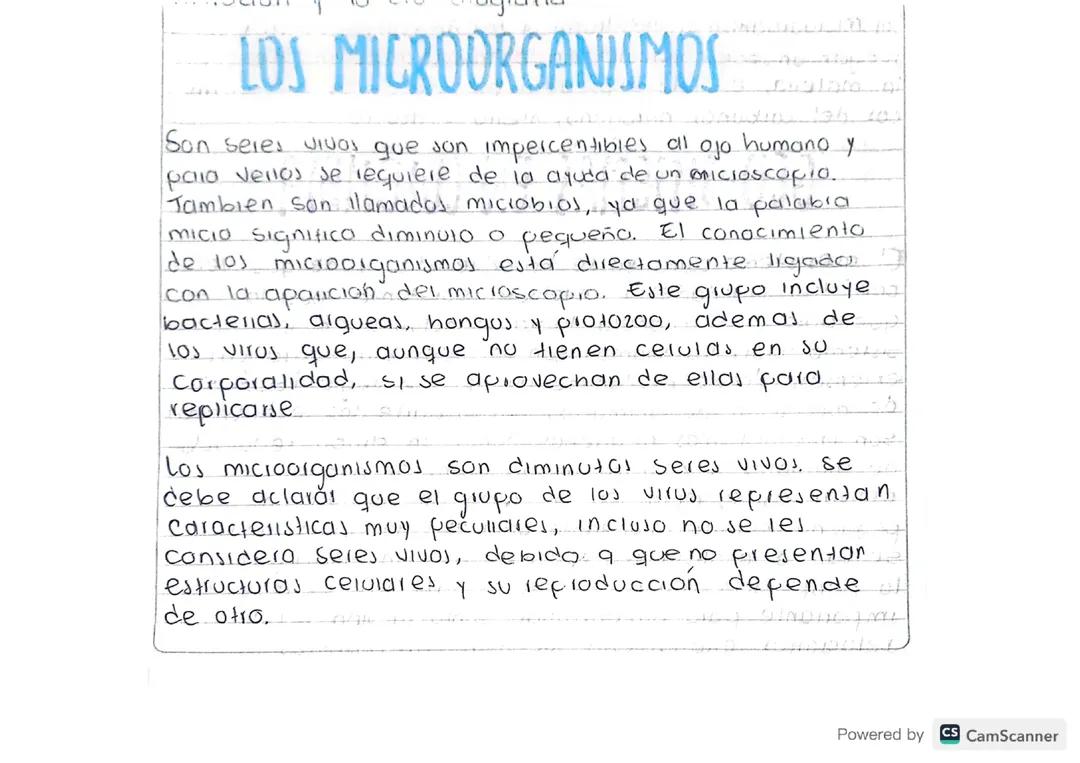 LOS MICROORGANISMOS
Son seres vivos que son impercentibles al ojo humano y
para verlos se requiere de la ayuda de un microscopio.
Tambien son llamados microbios, ya que la palabra
micro significa diminuto o pequeño. El conocimiento
de los microorganismos está directamente ligado
con la aparición del microscopio. Este grupo incluye
bacterias, algueas, hongos y protozoo, ademas de
los virus que, aunque no tienen celulas en su
corporalidad, si se aprovechan de ellas para
replicarse
Los microorganismos son diminutos seres vivos. se
debe aclarar que el grupo de los virus representan
caracteristicas muy peculiares, incluso no se les
considera seres vivos, debido a que no presentan
estructuras celulares y su reproducción depende
de otro.
Powered by CS CamScanner